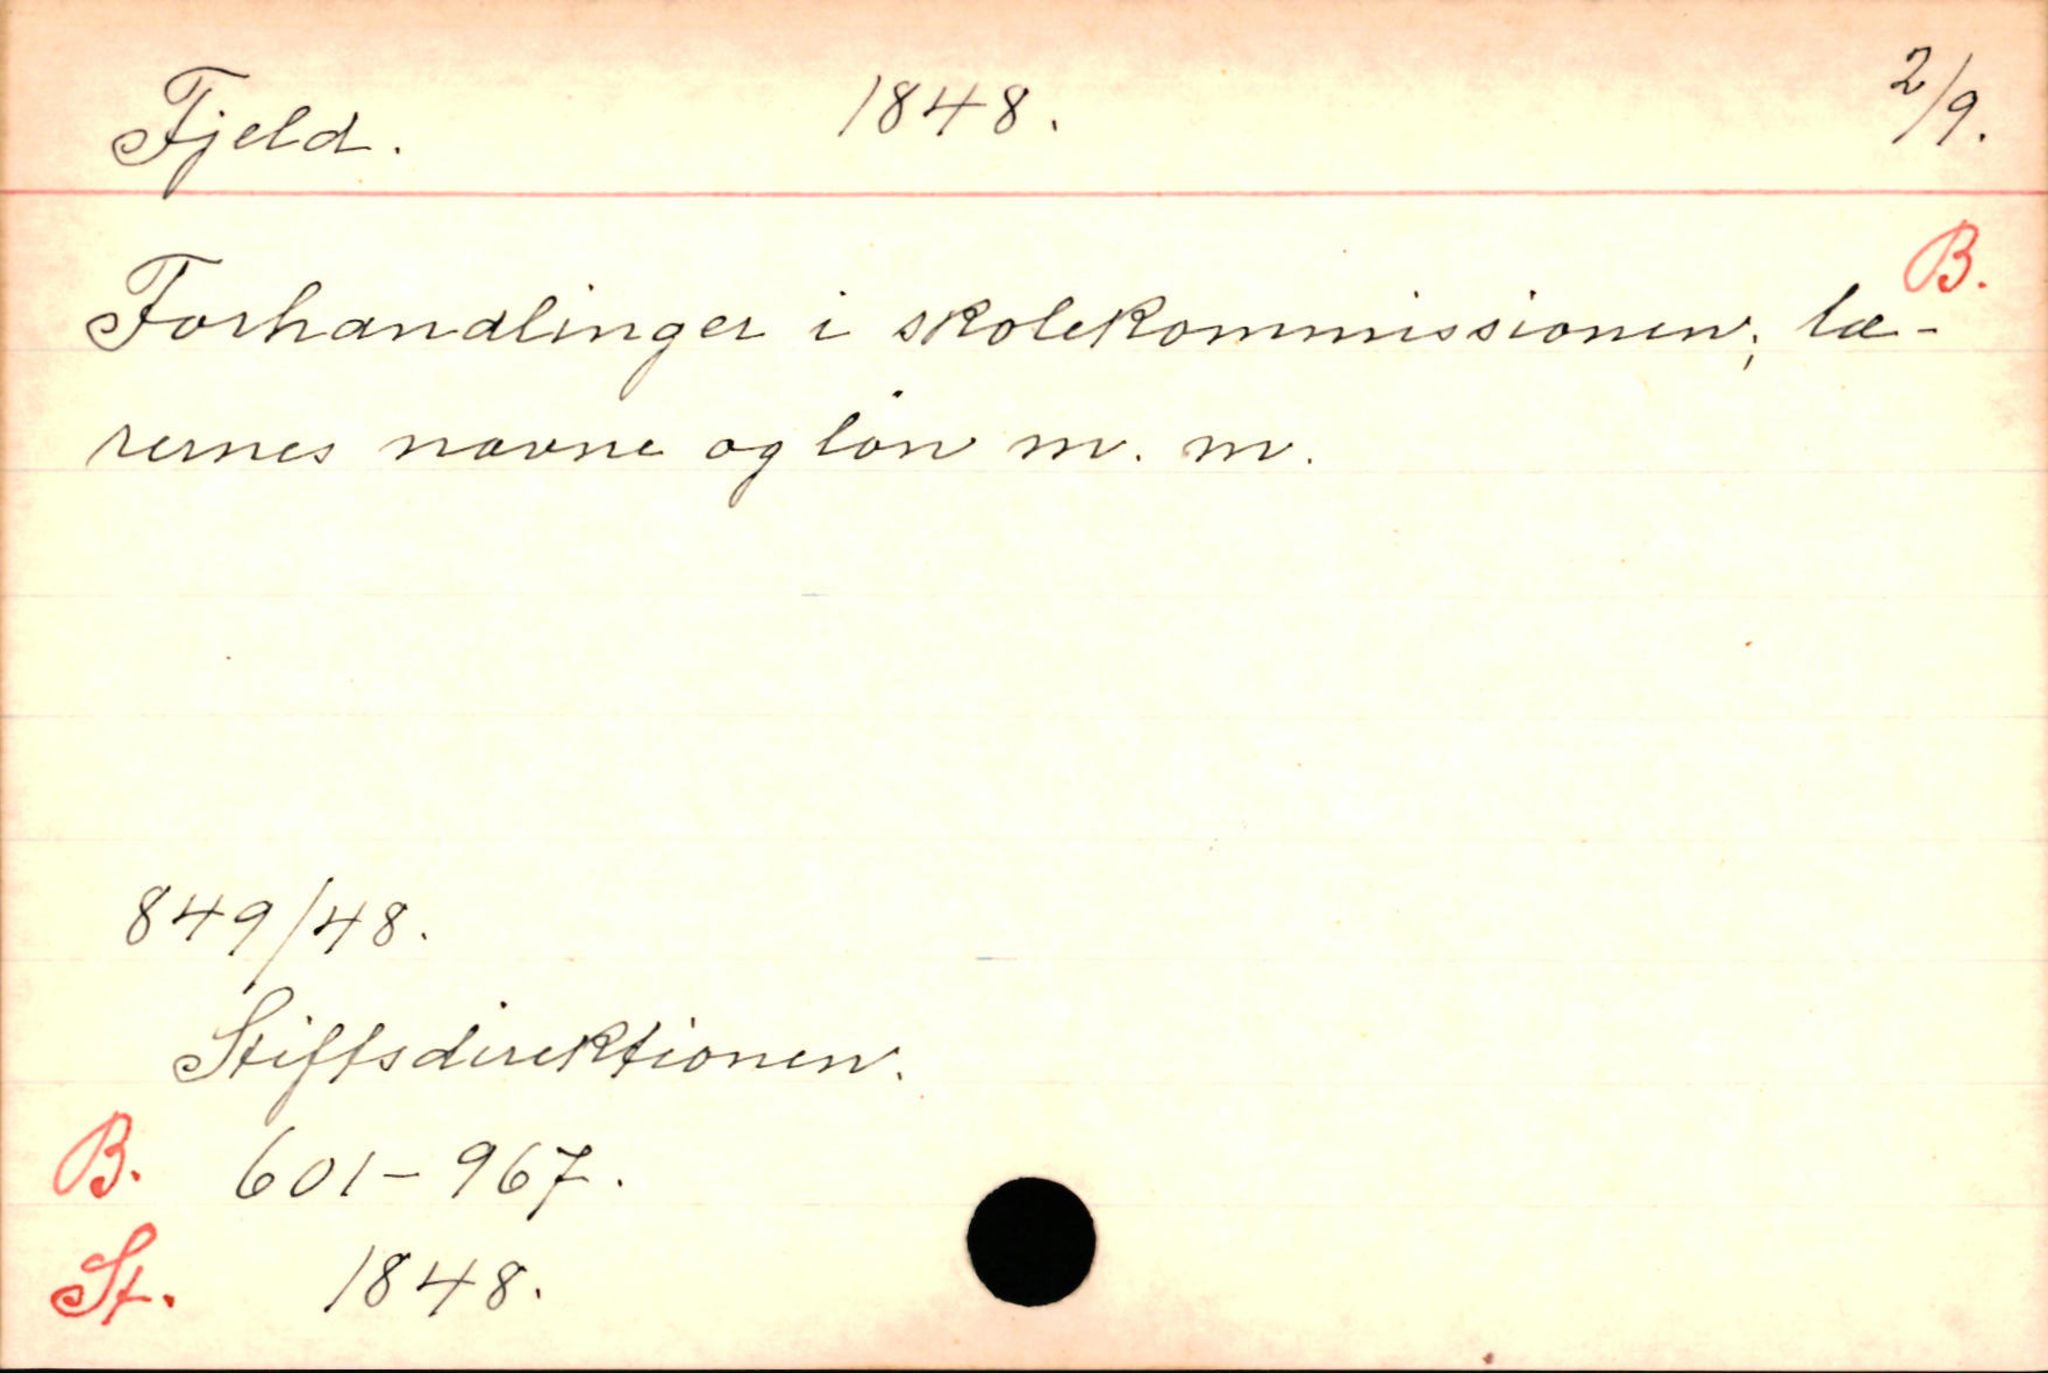 Fjeld. 1848. 2/9.
B.
Forhandlinger i skolekommissionen; læ-
rernes navne og løn m. m.
849/48.
Stiftsdirektionen.
B. 601-967.
St. 1848.